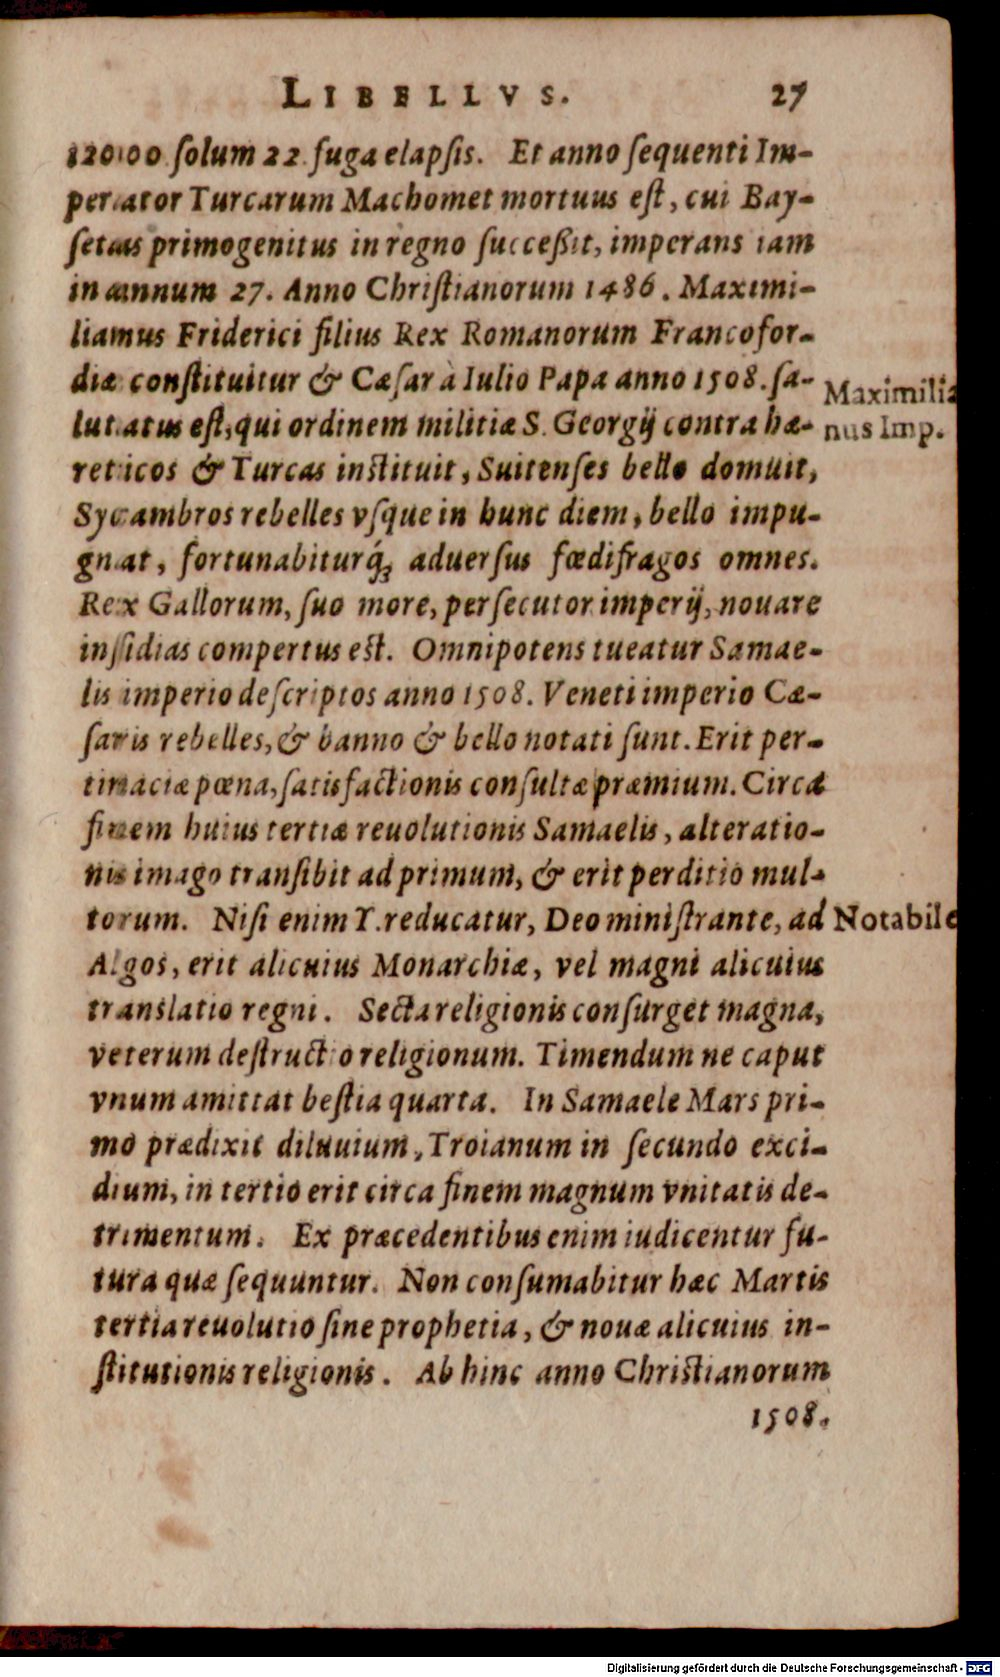 LIBELLVS. 27
12000 ſolum 22 fuga elapſis. Et anno ſequenti Im-
perator Turcarum Machomet mortuus eſt, cui Bay-
ſetus primogenitus in regno ſucceßit, imperans iam
in annum 27. Anno Chriſtianorum 1486. Maximi-
lianus Friderici filius Rex Romanorum Francofor-
diæ conſtituitur & Cæſar à Iulio Papa anno 1508. ſa-
Maximilia
lutatus eſt, qui ordinem militiæ S. Georgij contra hæ-
nus Imp.
reticos & Turcas inſtituit, Suitenſes bello domuit,
Sycambros rebelles vſque in hunc diem, bello impu-
gnat, fortunabiturq́; aduerſus fœdifragos omnes.
Rex Gallorum, ſuo more, perſecutor imperij, nouare
inſidias compertus eſt. Omnipotens tueatur Samae-
lis imperio deſcriptos anno 1508. Veneti imperio Cæ-
ſaris rebelles, & banno & bello notati ſunt. Erit per-
tinaciæ pœna, ſatisfactionis conſultæ præmium. Circa
finem huius tertiæ reuolutionis Samaelis, alteratio-
nis imago tranſibit ad primum, & erit perditio mul-
torum. Niſi enim ϒ. reducatur, Deo miniſtrante, ad
Notabile
Algos, erit alicuius Monarchiæ, vel magni alicuius
translatio regni. Secta religionis conſurget magna,
veterum deſtructio religionum. Timendum ne caput
vnum amittat beſtia quarta. In Samaele Mars pri-
mo prædixit diluuium, Troianum in ſecundo exci-
dium, in tertio erit circa finem magnum vnitatis de-
trimentum. Ex præcedentibus enim iudicentur fu-
tura quæ ſequuntur. Non conſumabitur hæc Martis
tertia reuolutio ſine prophetia, & nouæ alicuius in-
ſtitutionis religionis. Ab hinc anno Chriſtianorum
1508.
Digitalisierung gefördert durch die Deutsche Forschungsgemeinschaft - DFG